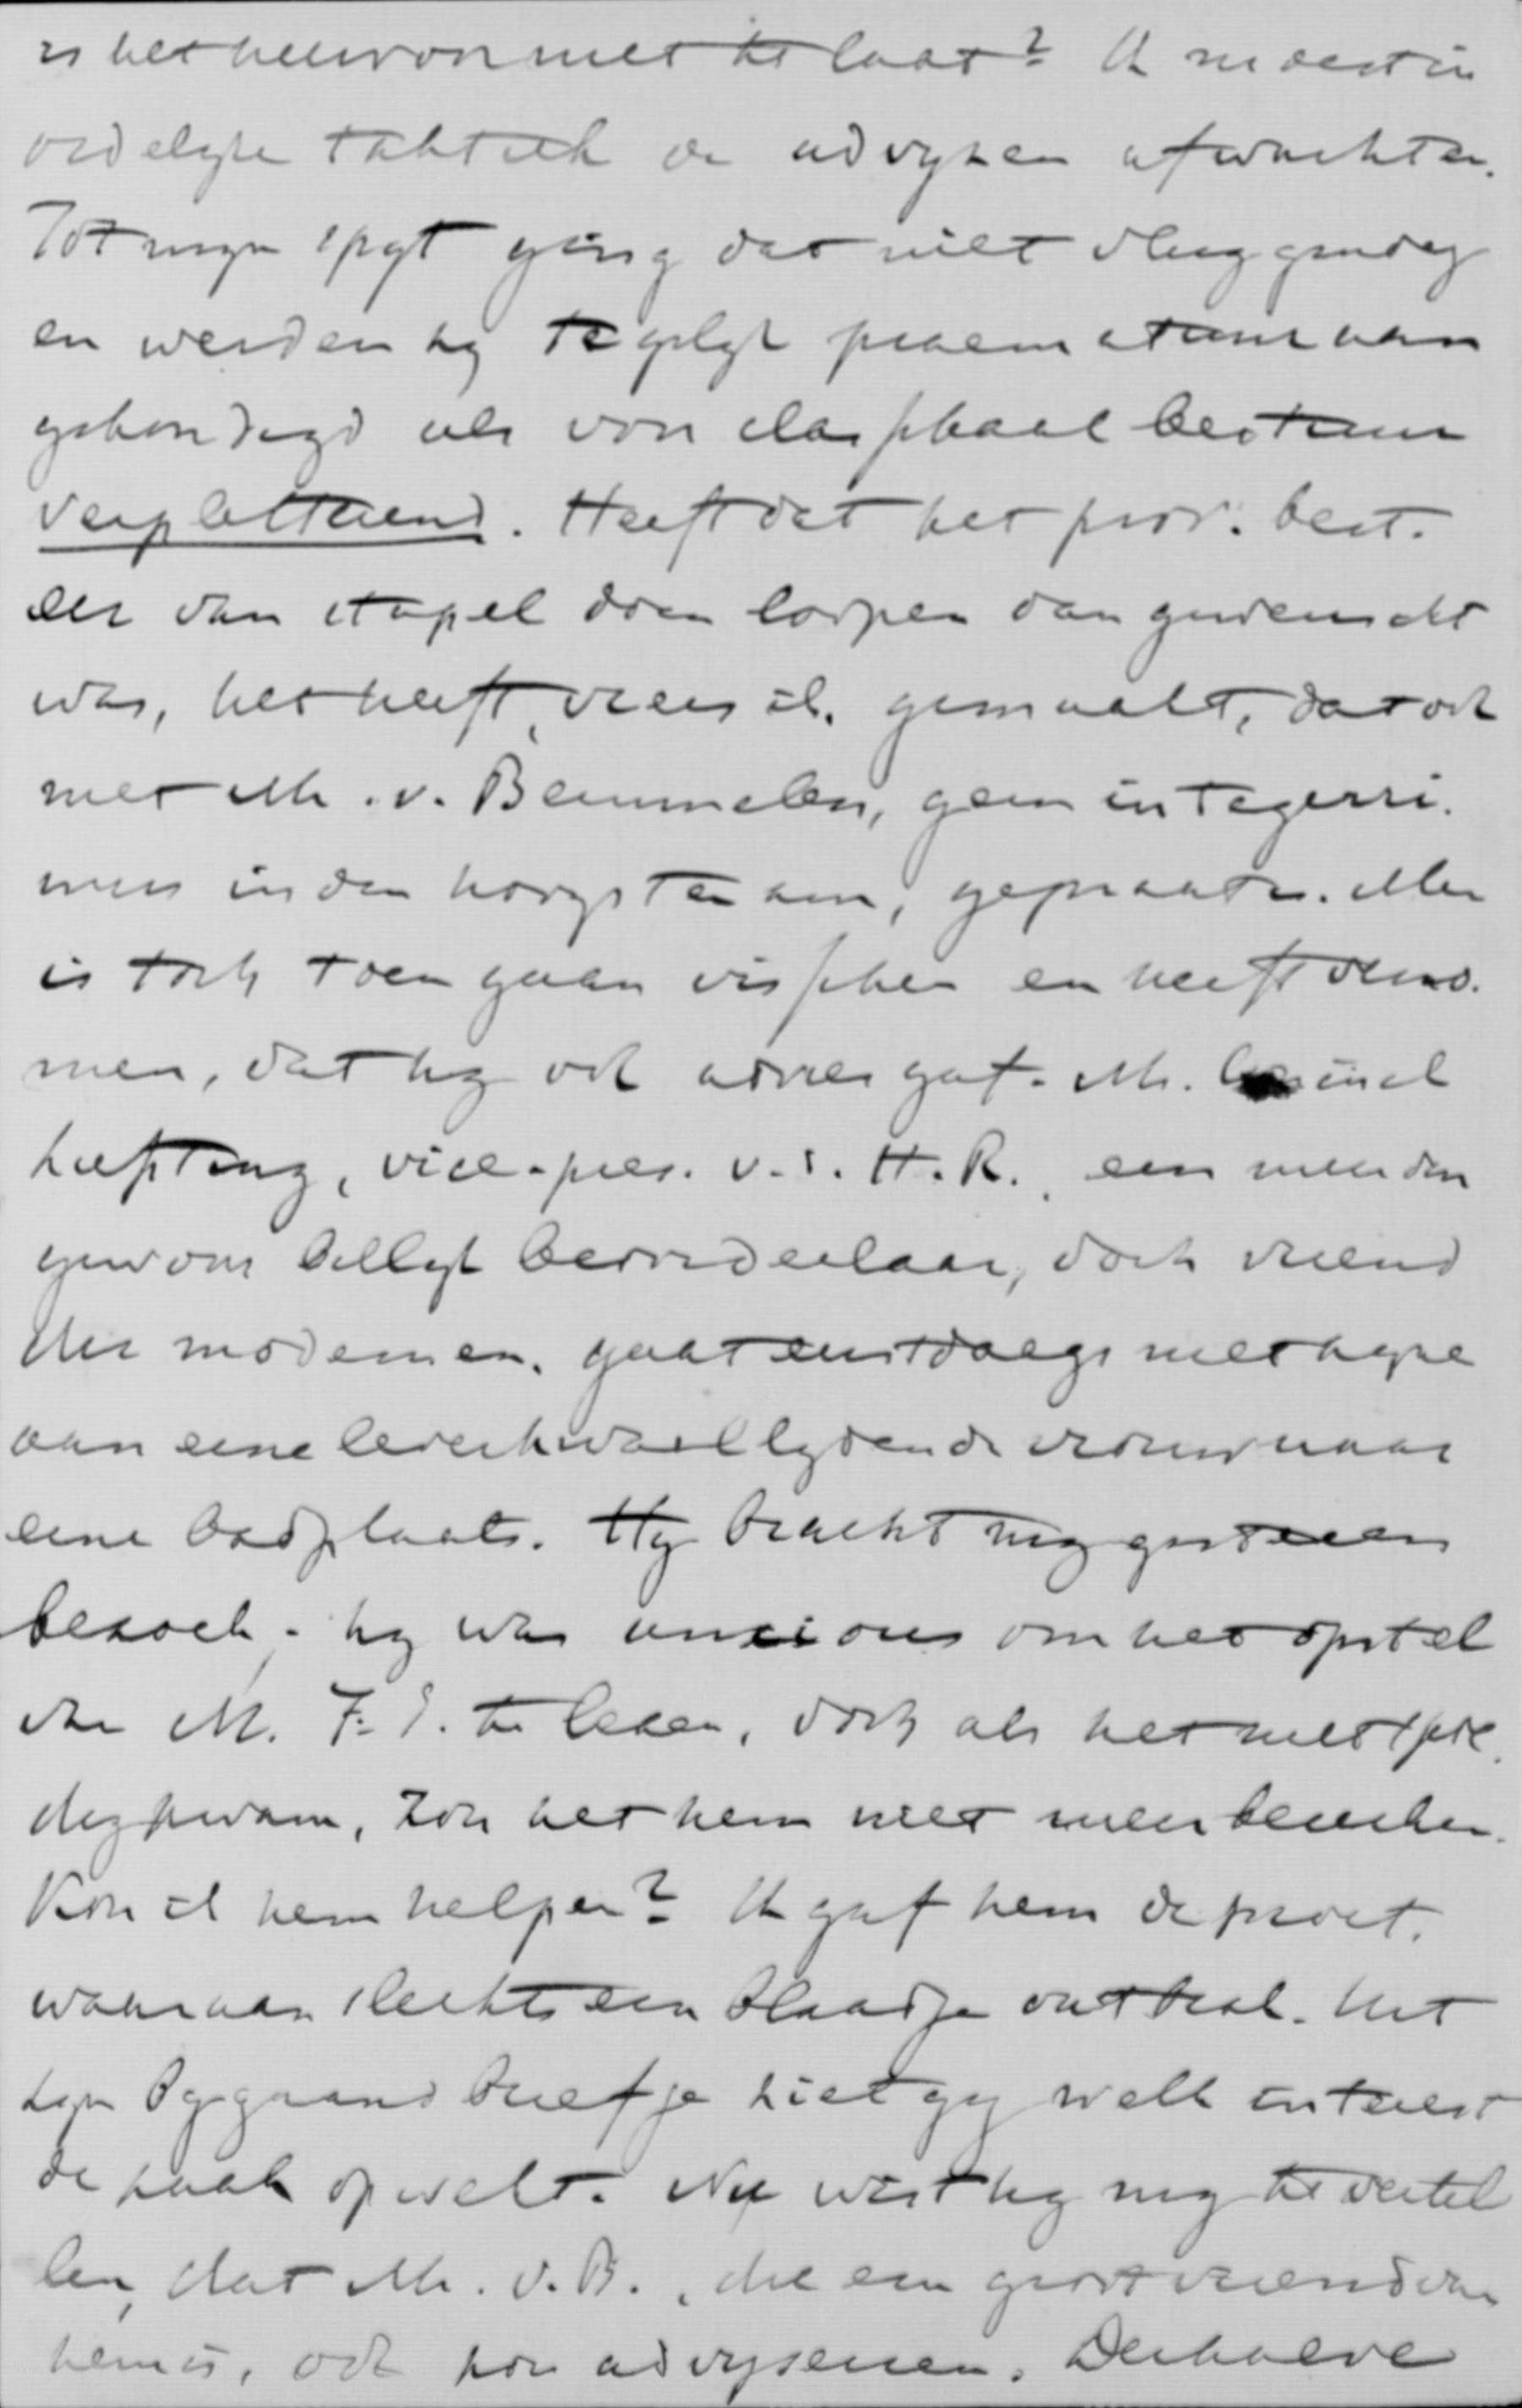 is het hiervoor niet te laat? Ik moest in
ordelyke taktiek de advyzen afwachten.
Tot myn spyt ging dat niet vlug genoeg
en werden zy tegelyk praematuur aan
gekondigd als voor das paal bestuur
verpletterend. Heeft dat het prov. best.
der van stapel doen loopen dan gewenscht
was, het heeft, vrees ik, gemaakt, dat ook
met Mr. v. Bemmelen, geen integerri-
mus in den hoogsten zin, gepraat is. Men
is toch toen gaan visschen en heeft verno-
men, dat hy ook advies gaf. Mr. Coninck
Liefsting, vice-pres. v. d. H. R., een meer dan
gewoon billyk beoordeelaar, doch vriend
der modernen, gaat eerstdaags met zyne
aan eene leverkwaal lydende vrouw naar
eene badplaats. Hy bracht my gisteren
bezoek; hy was anxious om het opstel
van M. F. S. te lezen, doch als het niet spoe-
dig kwam, zou het hem niet meer bereiken.
Kon ik hem helpen? Ik gaf hem de proef,
waaraan slechts een blaadje ontbrak. Uit
zyn bygaand briefje ziet gy welk interest
de zaak opwekt. Nu wist hy my te vertel
len, dat Mr. v. B., die een groot vriend van
hem is, ook zou adviseeren. Derhalve